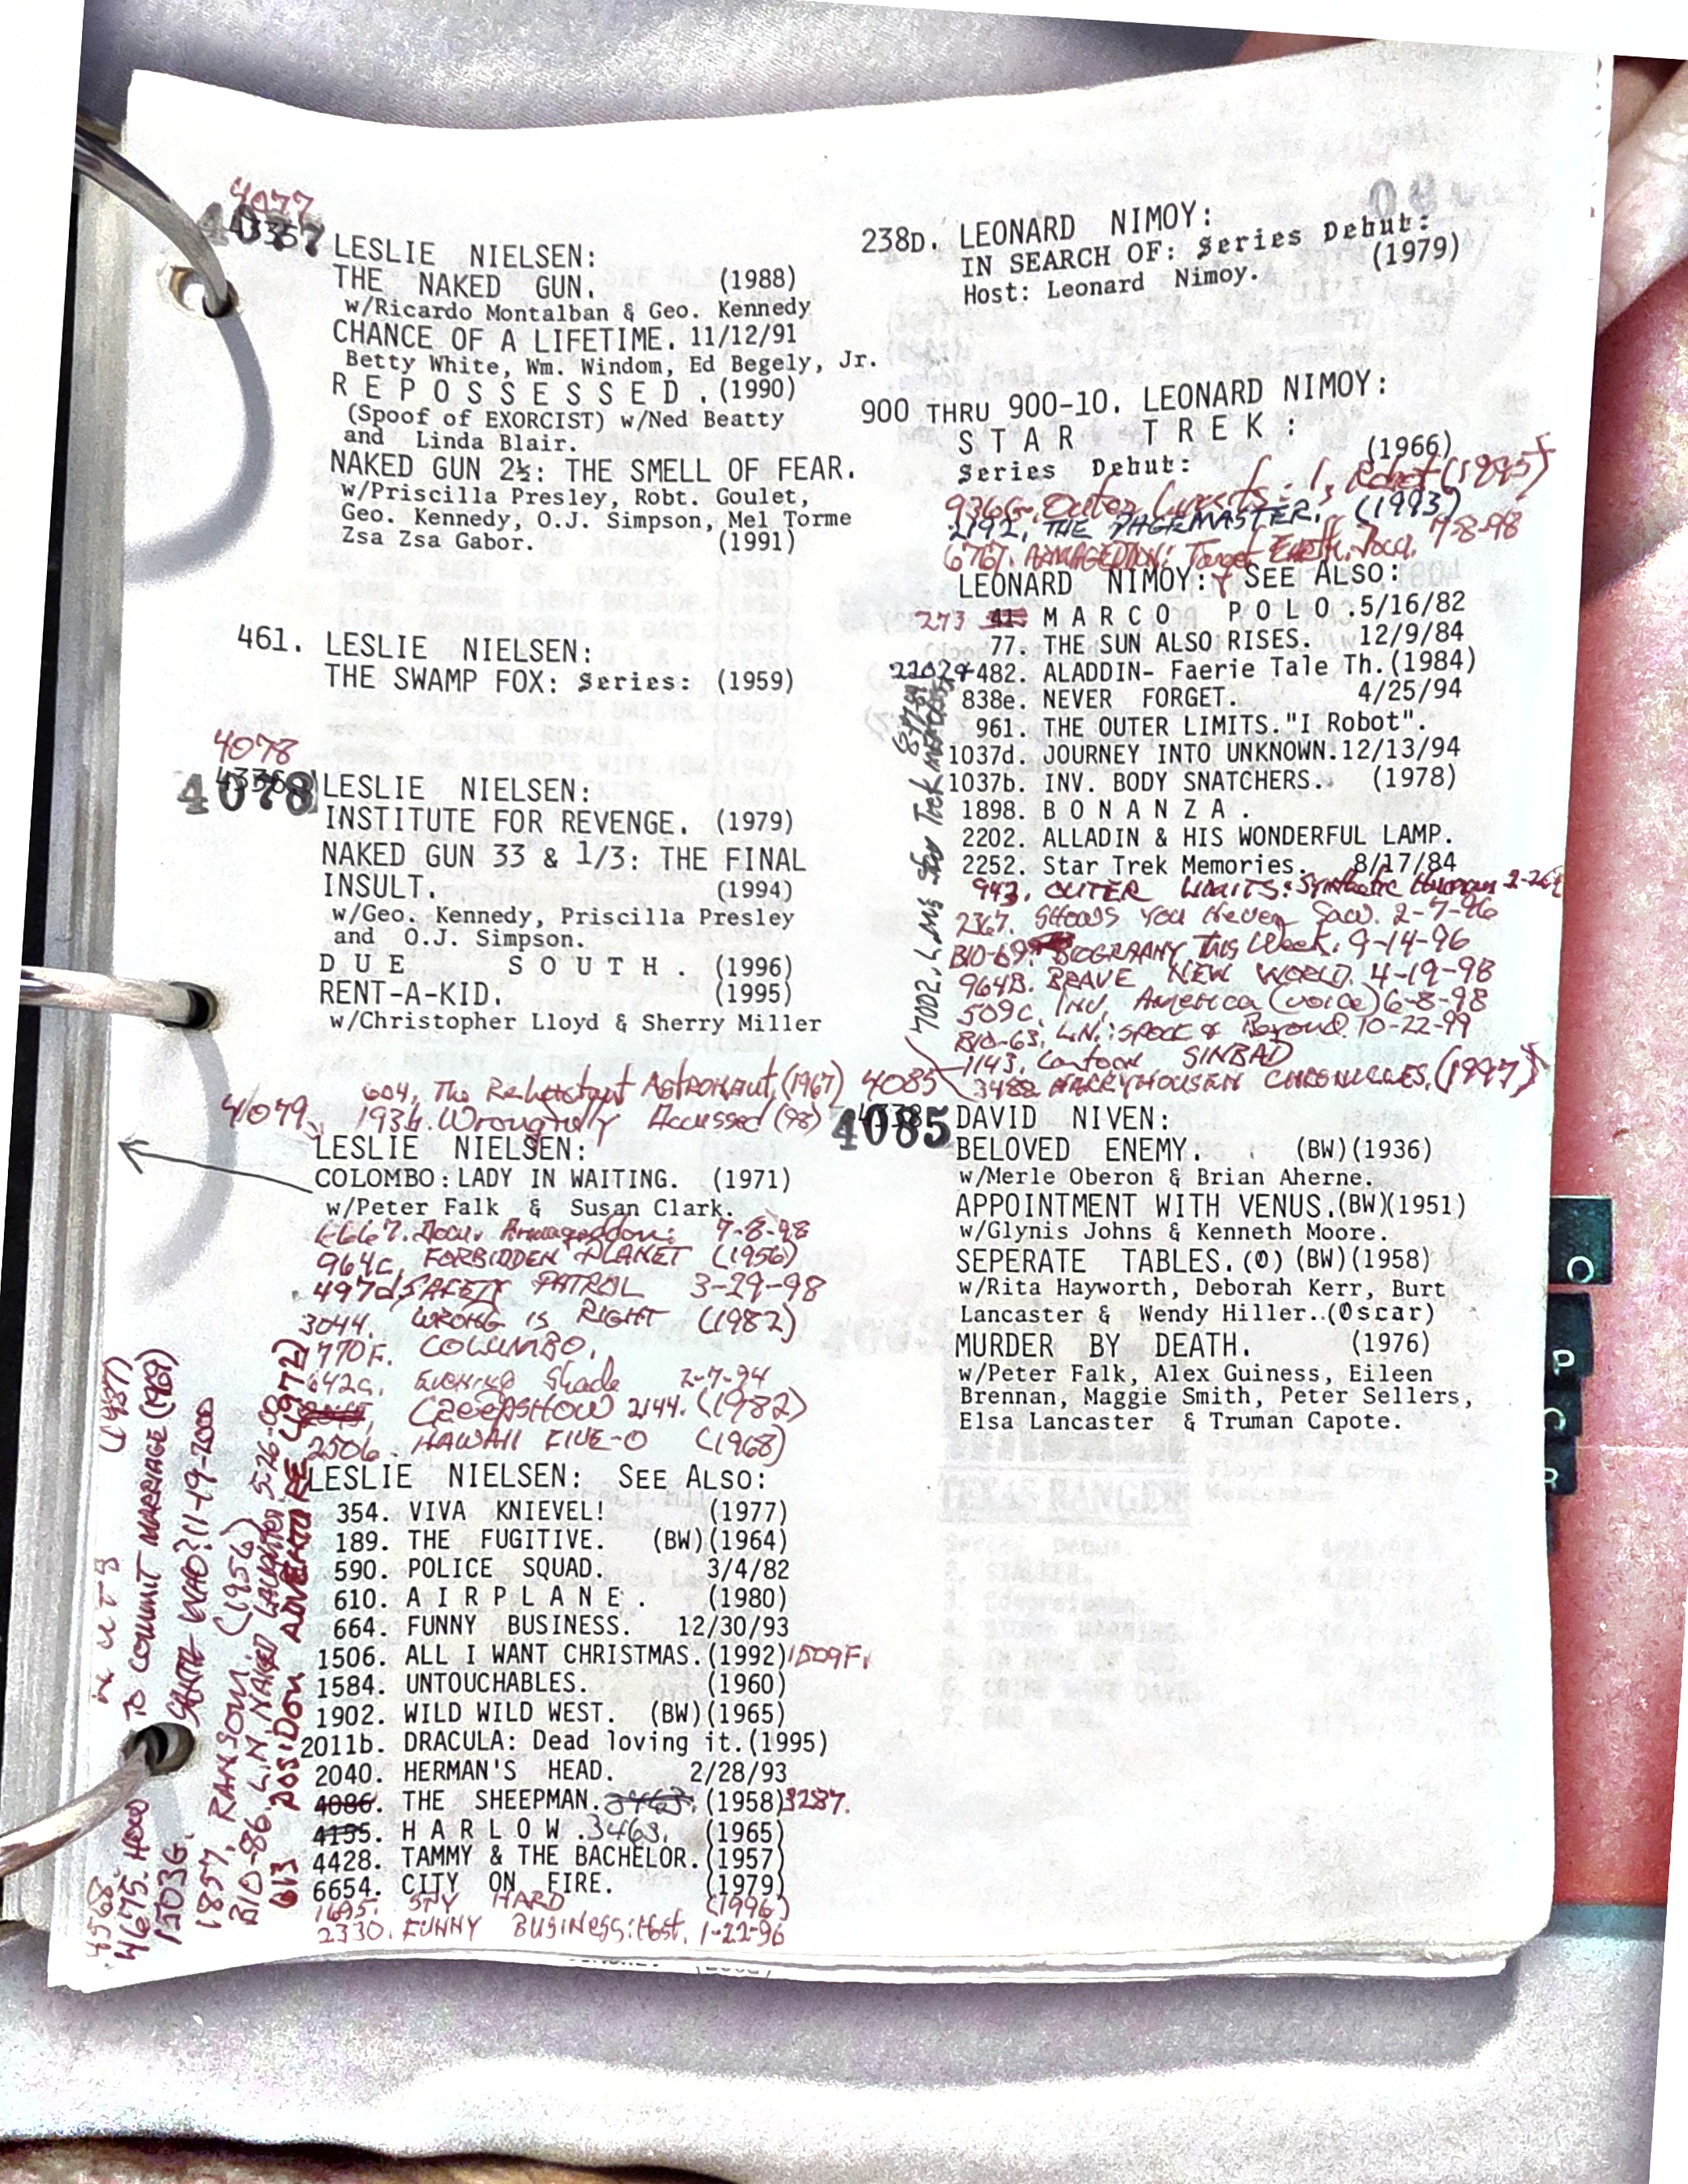 4077
4077
LESLIE NIELSEN:
THE NAKED GUN. (1988)
w/Ricardo Montalban & Geo. Kennedy
CHANCE OF A LIFETIME. 11/12/91
Betty White, Wm. Windom, Ed Begely, Jr.
R E P O S S E S S E D . (1990)
(Spoof of EXORCIST) w/Ned Beatty
and Linda Blair.
NAKED GUN 2½: THE SMELL OF FEAR.
w/Priscilla Presley, Robt. Goulet,
Geo. Kennedy, O.J. Simpson, Mel Torme
Zsa Zsa Gabor. (1991)
461. LESLIE NIELSEN:
THE SWAMP FOX: Series: (1959)
4078
4078 LESLIE NIELSEN:
INSTITUTE FOR REVENGE. (1979)
NAKED GUN 33 & 1/3: THE FINAL
INSULT. (1994)
w/Geo. Kennedy, Priscilla Presley
and O.J. Simpson.
D U E S O U T H . (1996)
RENT-A-KID. (1995)
w/Christopher Lloyd & Sherry Miller
604, The Reluctant ASTRONAUT, (1967)
4079. 1936. Wrongfully Accussed (98)
LESLIE NIELSEN:
COLOMBO: LADY IN WAITING. (1971)
w/Peter Falk & Susan Clark.
6667. Docu. Armageddon: 7-8-98
964c, FORBIDDEN PLANET (1956)
497d SAFETY PATROL 3-29-98
3044. WRONG IS RIGHT (1982)
770F. COLUMBO.
Shade 2-7-94
CREEPSHOW 2144. (1982)
2506. HAWAII FIVE-O (1968)
LESLIE NIELSEN: SEE ALSO:
354. VIVA KNIEVEL! (1977)
189. THE FUGITIVE. (BW)(1964)
590. POLICE SQUAD. 3/4/82
610. A I R P L A N E . (1980)
664. FUNNY BUSINESS. 12/30/93
1506. ALL I WANT CHRISTMAS.(1992) 1509F.
1584. UNTOUCHABLES. (1960)
1902. WILD WILD WEST. (BW)(1965)
2011b. DRACULA: Dead loving it.(1995)
2040. HERMAN'S HEAD. 2/28/93
4086. THE SHEEPMAN. 3463. (1958) 3287.
4155. H A R L O W . 3463. (1965)
4428. TAMMY & THE BACHELOR.(1957)
6654. CITY ON FIRE. (1979)
1695. SPY HARD (1996)
2330. FUNNY BUSINESS: Host. 1-22-96
4568 NUTS (1987)
4675. HOW TO COMMIT MARRIAGE (1969)
1503G. SANTE WHO? 11-19-2000
1857, RANSOM. (1956)
BIO-86. L.N. NAKED LAUGHTER 5-26-00
613 POSIDON ADVENTURE (1972)
238D. LEONARD NIMOY:
IN SEARCH OF: Series Debut:
Host: Leonard Nimoy. (1979)
900 THRU 900-10. LEONARD NIMOY:
S T A R T R E K :
Series Debut: (1966)
936G. Outer Limits: I, Robot (1995)
2192, THE PAGEMASTER. (1993)
6767. ARMAGEDDON: Target Earth. Docu. 7-8-98
LEONARD NIMOY: SEE ALSO:
273 41. M A R C O P O L O . 5/16/82
77. THE SUN ALSO RISES. 12/9/84
482. ALADDIN- Faerie Tale Th.(1984)
838e. NEVER FORGET. 4/25/94
961. THE OUTER LIMITS."I Robot".
1037d. JOURNEY INTO UNKNOWN.12/13/94
1037b. INV. BODY SNATCHERS. (1978)
1898. B O N A N Z A .
2202. ALLADIN & HIS WONDERFUL LAMP.
2252. Star Trek Memories. 8/17/84
943, OUTER LIMITS: Synthetic Humans
2367. SHOWS You Never Saw. 2-7-96
BIO-69. BIOGRAPHY This Week. 9-14-96
964B. BRAVE NEW WORLD. 4-19-98
509c. INV. America (voice) 6-8-98
BIO-63, L.N.: SPOCK & Beyond. 10-22-99
1143, Cartoon SINBAD
3488 HARRYHOUSEN CHRONICLES, (1997)
7002. Star Trek Memories
4085
4085 DAVID NIVEN:
BELOVED ENEMY. (BW)(1936)
w/Merle Oberon & Brian Aherne.
APPOINTMENT WITH VENUS.(BW)(1951)
w/Glynis Johns & Kenneth Moore.
SEPERATE TABLES.(O)(BW)(1958)
w/Rita Hayworth, Deborah Kerr, Burt
Lancaster & Wendy Hiller..(Oscar)
MURDER BY DEATH. (1976)
w/Peter Falk, Alex Guiness, Eileen
Brennan, Maggie Smith, Peter Sellers,
Elsa Lancaster & Truman Capote.
O
P
Q
R